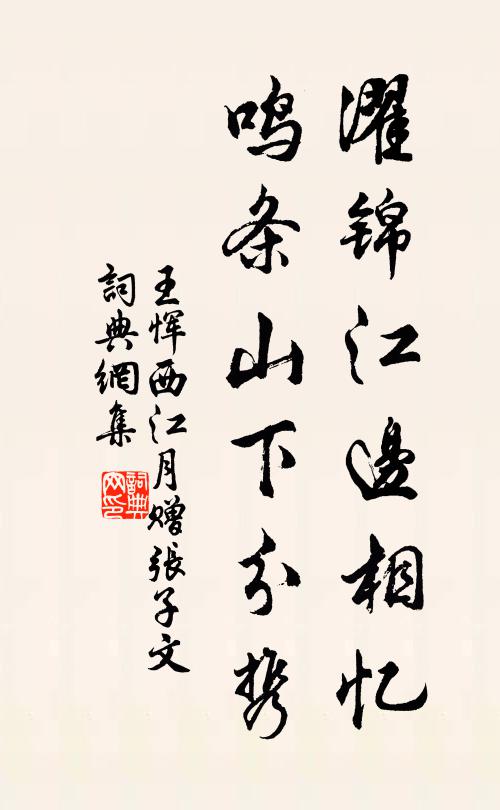 濯锦江邊相忆
鸣条山下分携
王恽西江月赠張子文
詞典網集
詞典网印